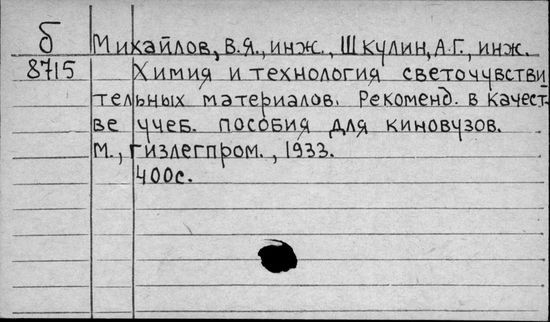 б
Михайлов, В.Я., инж., Шкулин, А.Г., инж.
8715
Химия и технология светочувстви
тельных материалов. Рекоменд. в качест-
ве учеб. пособия для киновузов.
М., гизлегпром., 1933.
400с.